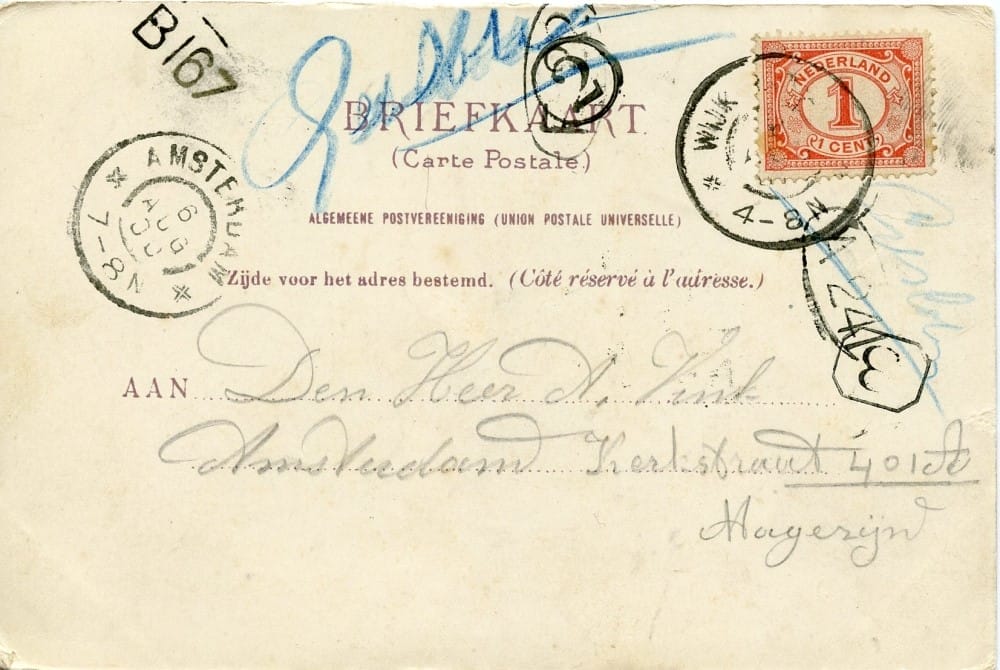 B167
NEDERLAND
1
1 CENT
WIJK
4-8N
BRIEFKAART
(Carte Postale.)
AMSTERDAM
6
AUG
7-8N
ALGEMEENE POSTVEREENIGING (UNION POSTALE UNIVERSELLE)
Zijde voor het adres bestemd. (Côté réservé à l'adresse.)
3
AAN Den Heer A. Vink
Amsterdam Kerkstraat 401